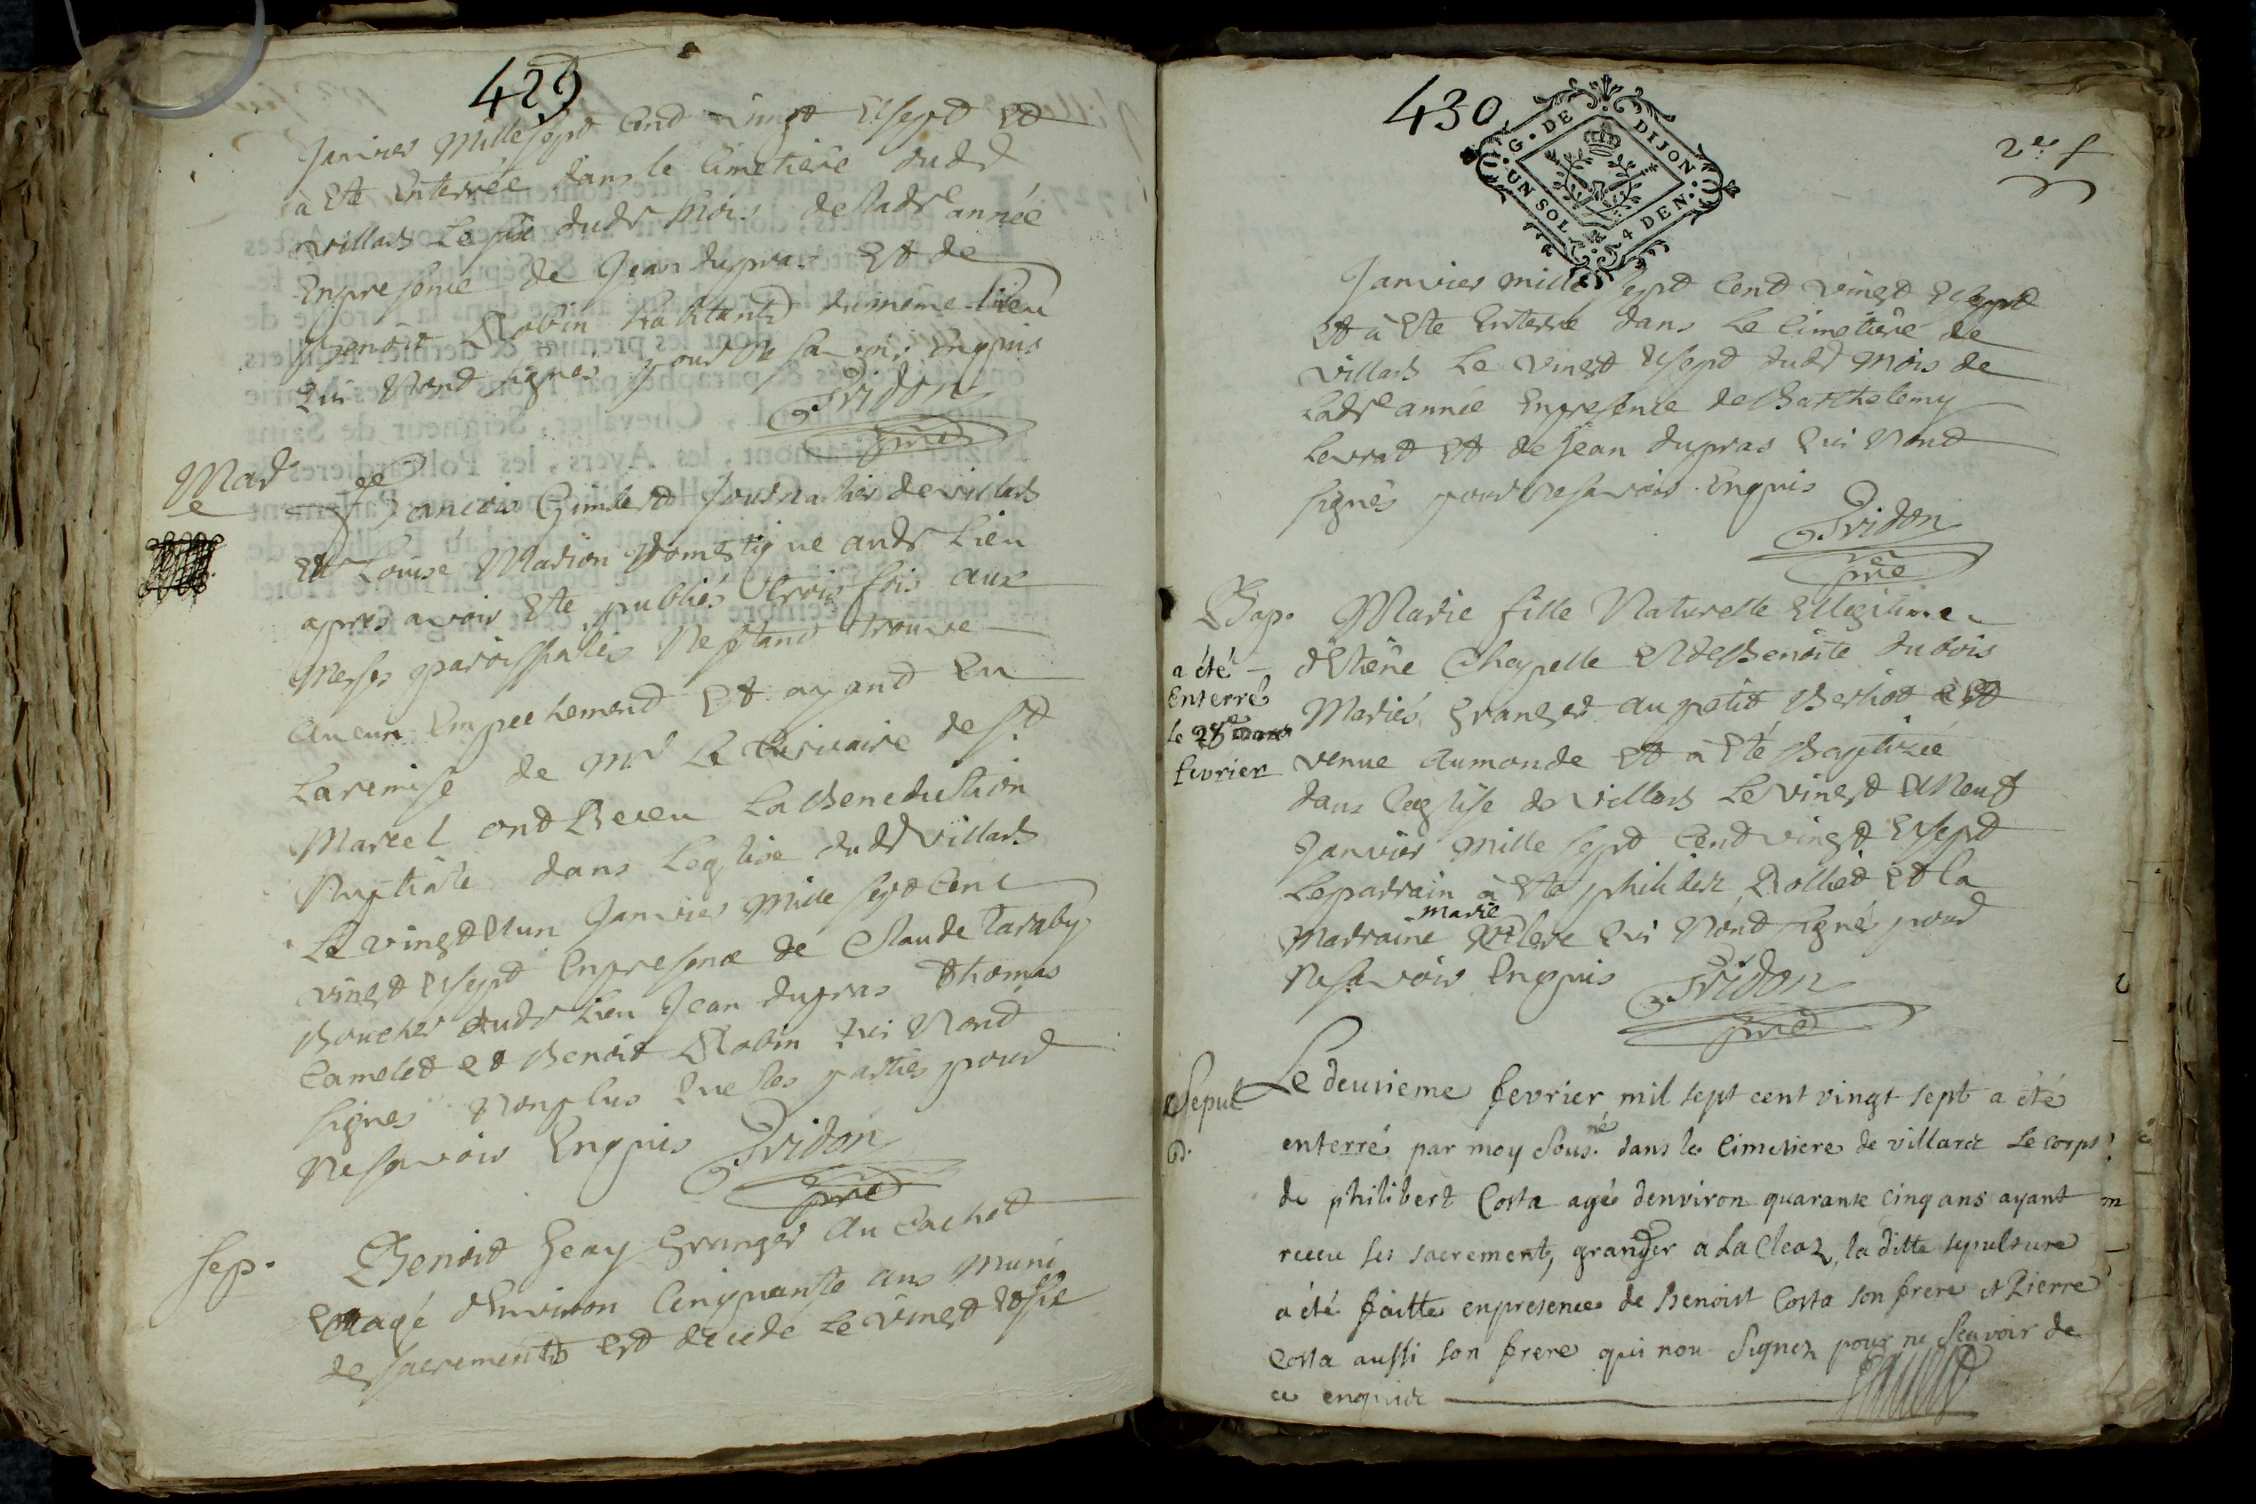 429
Janvier mille sept cent vingt et sept et
a ete enterrée dans le cimetiere dudt
villars le dudt mois de ladte année
en presence de Jean dupras et de
Benoit Robin habitants du meme lieu
qui nont signés pour ne savoir enquis
Pridon
pre
Mar
e
francois Guimbert de villars
et Louise Marion domestique audt lieu
apres avoir ete publiés trois fois aux
messes paroissiales ne stant trouve
aucun empechement et ayand eu
la remise de mr le de st
Marcel ont Receu la benediction
Nuptiale dans leglise dudt villars
le vingt et un Janvier mille sept cent
vingt et sept en presence de Claude taraby
boucher dudt lieu Jean dupras thomas
Camelet et benoit Robin qui nont
signes non plus que les parties pour
ne savoir enquis Pridon
pre
sep.
Benoit Geay granger au cachet
agé denviron cinquante ans muni
des sacrements est decedé le vingt
430
G. DE DIJON.
UN SOL. 4 DEN.
2e f
Janvier mille sept cent vingt et sept
et a ete enterre dans le cimetiere de
villars le vingt et sept dudt mois de
ladte année en presence de Barthelemy
Levrat et de Jean dupras qui nont
signés pour ne savoir enquis
Pridon
pre
Bap.
a été
enterré
le 28e
fevrier
Marie fille Naturelle et legitime
Chapelle et de Benoite dubois
Mariés granger au petit est
venue au monde et a été Baptizée
dans leglise de villars le vingt et neuf
Janvier mille sept cent vingt et sept
le parrain a ete philibert Rollet et la
marie
marraine qui nont signé pour
ne savoir enquis Pridon
pre
Sepul
Le deuxieme fevrier mil sept cent vingt sept a été
né
enterré par moy sous. dans le cimetiere de villars le corps
de philibert Costa agé denviron quarante cinq ans ayant
receu ses sacrements, granger a La Cleaz, la ditte sepulture
a été faitte en presence de Benoist Costa son frere et Pierre
Costa aussi son frere qui nou signez pour ne scavoir de
ce enquis